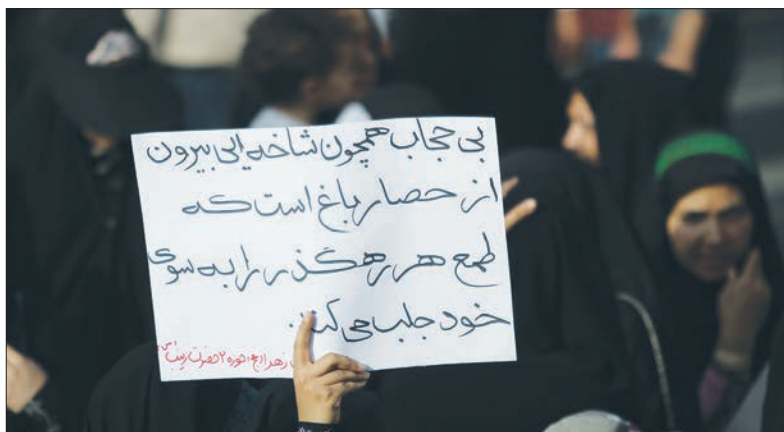 بی حجاب همچون شاخه ایی بیرون
از حصار باغ است که
طمع هر رهگذر را به سوی
خود جلب می کند.
زهرا (س) حوزه ۲ حضرت زینب (س)